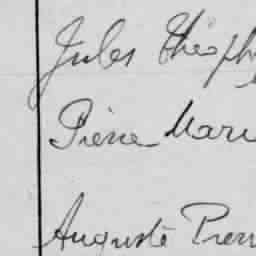 Jules Théoph
Pierre Mari
Auguste Pierr